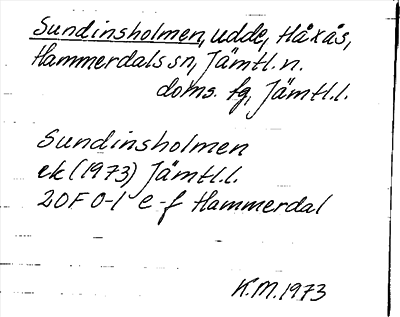 Sundinsholmen, udde, Håxås,
Hammerdals sn, Jämtl.n.
doms. fg, Jämtl.l.
Sundinsholmen
ek (1973) Jämtl.l.
20F 0-1 e-f Hammerdal
K.M. 1973